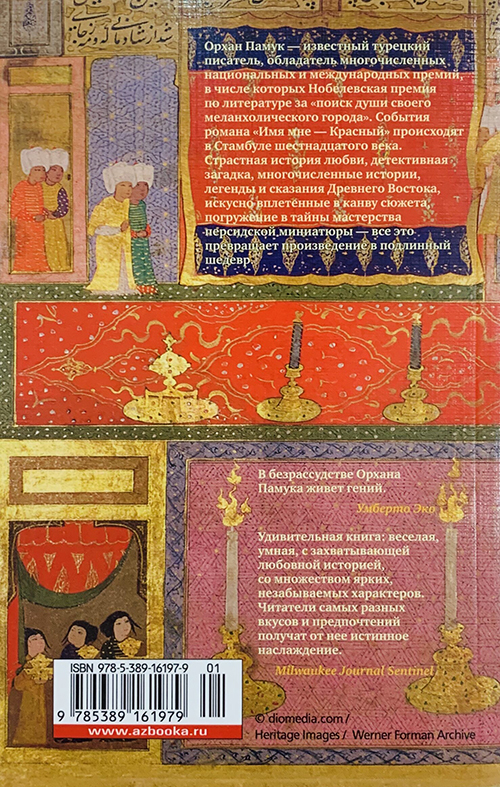 Орхан Памук — известный турецкий
писатель, обладатель многочисленных
национальных и международных премий,
в числе которых Нобелевская премия
по литературе за «поиск души своего
меланхолического города». События
романа «Имя мне — Красный» происходят
в Стамбуле шестнадцатого века.
Страстная история любви, детективная
загадка, многочисленные истории,
легенды и сказания Древнего Востока,
искусно вплетённые в канву сюжета,
погружение в тайны мастерства
персидской миниатюры — все это
превращает произведение в подлинный
шедевр.
В безрассудстве Орхана
Памука живет гений.
Умберто Эко
Удивительная книга: веселая,
умная, с захватывающей
любовной историей,
со множеством ярких,
незабываемых характеров.
Читатели самых разных
вкусов и предпочтений
получат от нее истинное
наслаждение.
Milwaukee Journal Sentinel
ISBN 978-5-389-16197-9 01
9 785389 161979
www.azbooka.ru
© diomedia.com /
Heritage Images / Werner Forman Archive